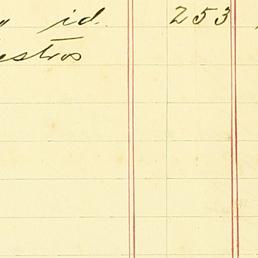 id. 253
estros